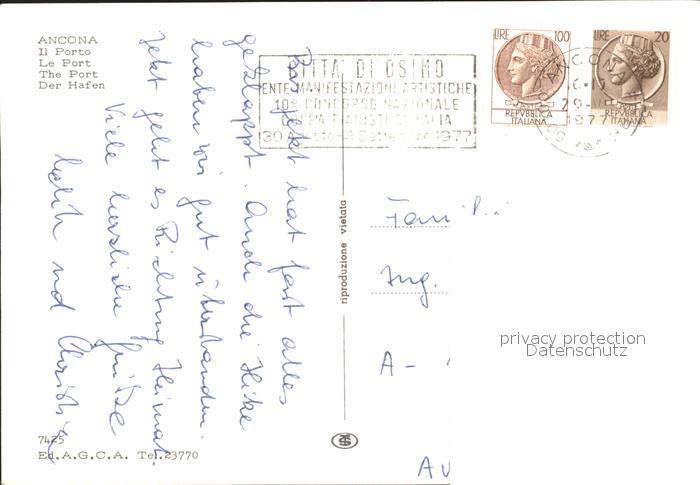 ANCONA
Il Porto
Le Port
The Port
Der Hafen
CITTA' DI OSIMO
ENTE MANIFESTAZIONI ARTISTICHE
10º CONCORSO NAZIONALE
COPPA PIANISTI D'ITALIA
30 Agosto-4 Settembre 1977
LIRE 100
REPVBBLICA
ITALIANA
LIRE 20
REPVBBLICA
ITALIANA
ANCONA
1977
Bis jetzt hat fast alles
geklappt. Auch die Hitze
haben wir gut überstanden.
Jetzt geht es Richtung Heimat.
Viele herzliche Grüße
und
riproduzione vietata
Fami
Ing.
A -
AU
privacy protection
Datenschutz
7425
Ed.A.G.C.A. Tel.23770